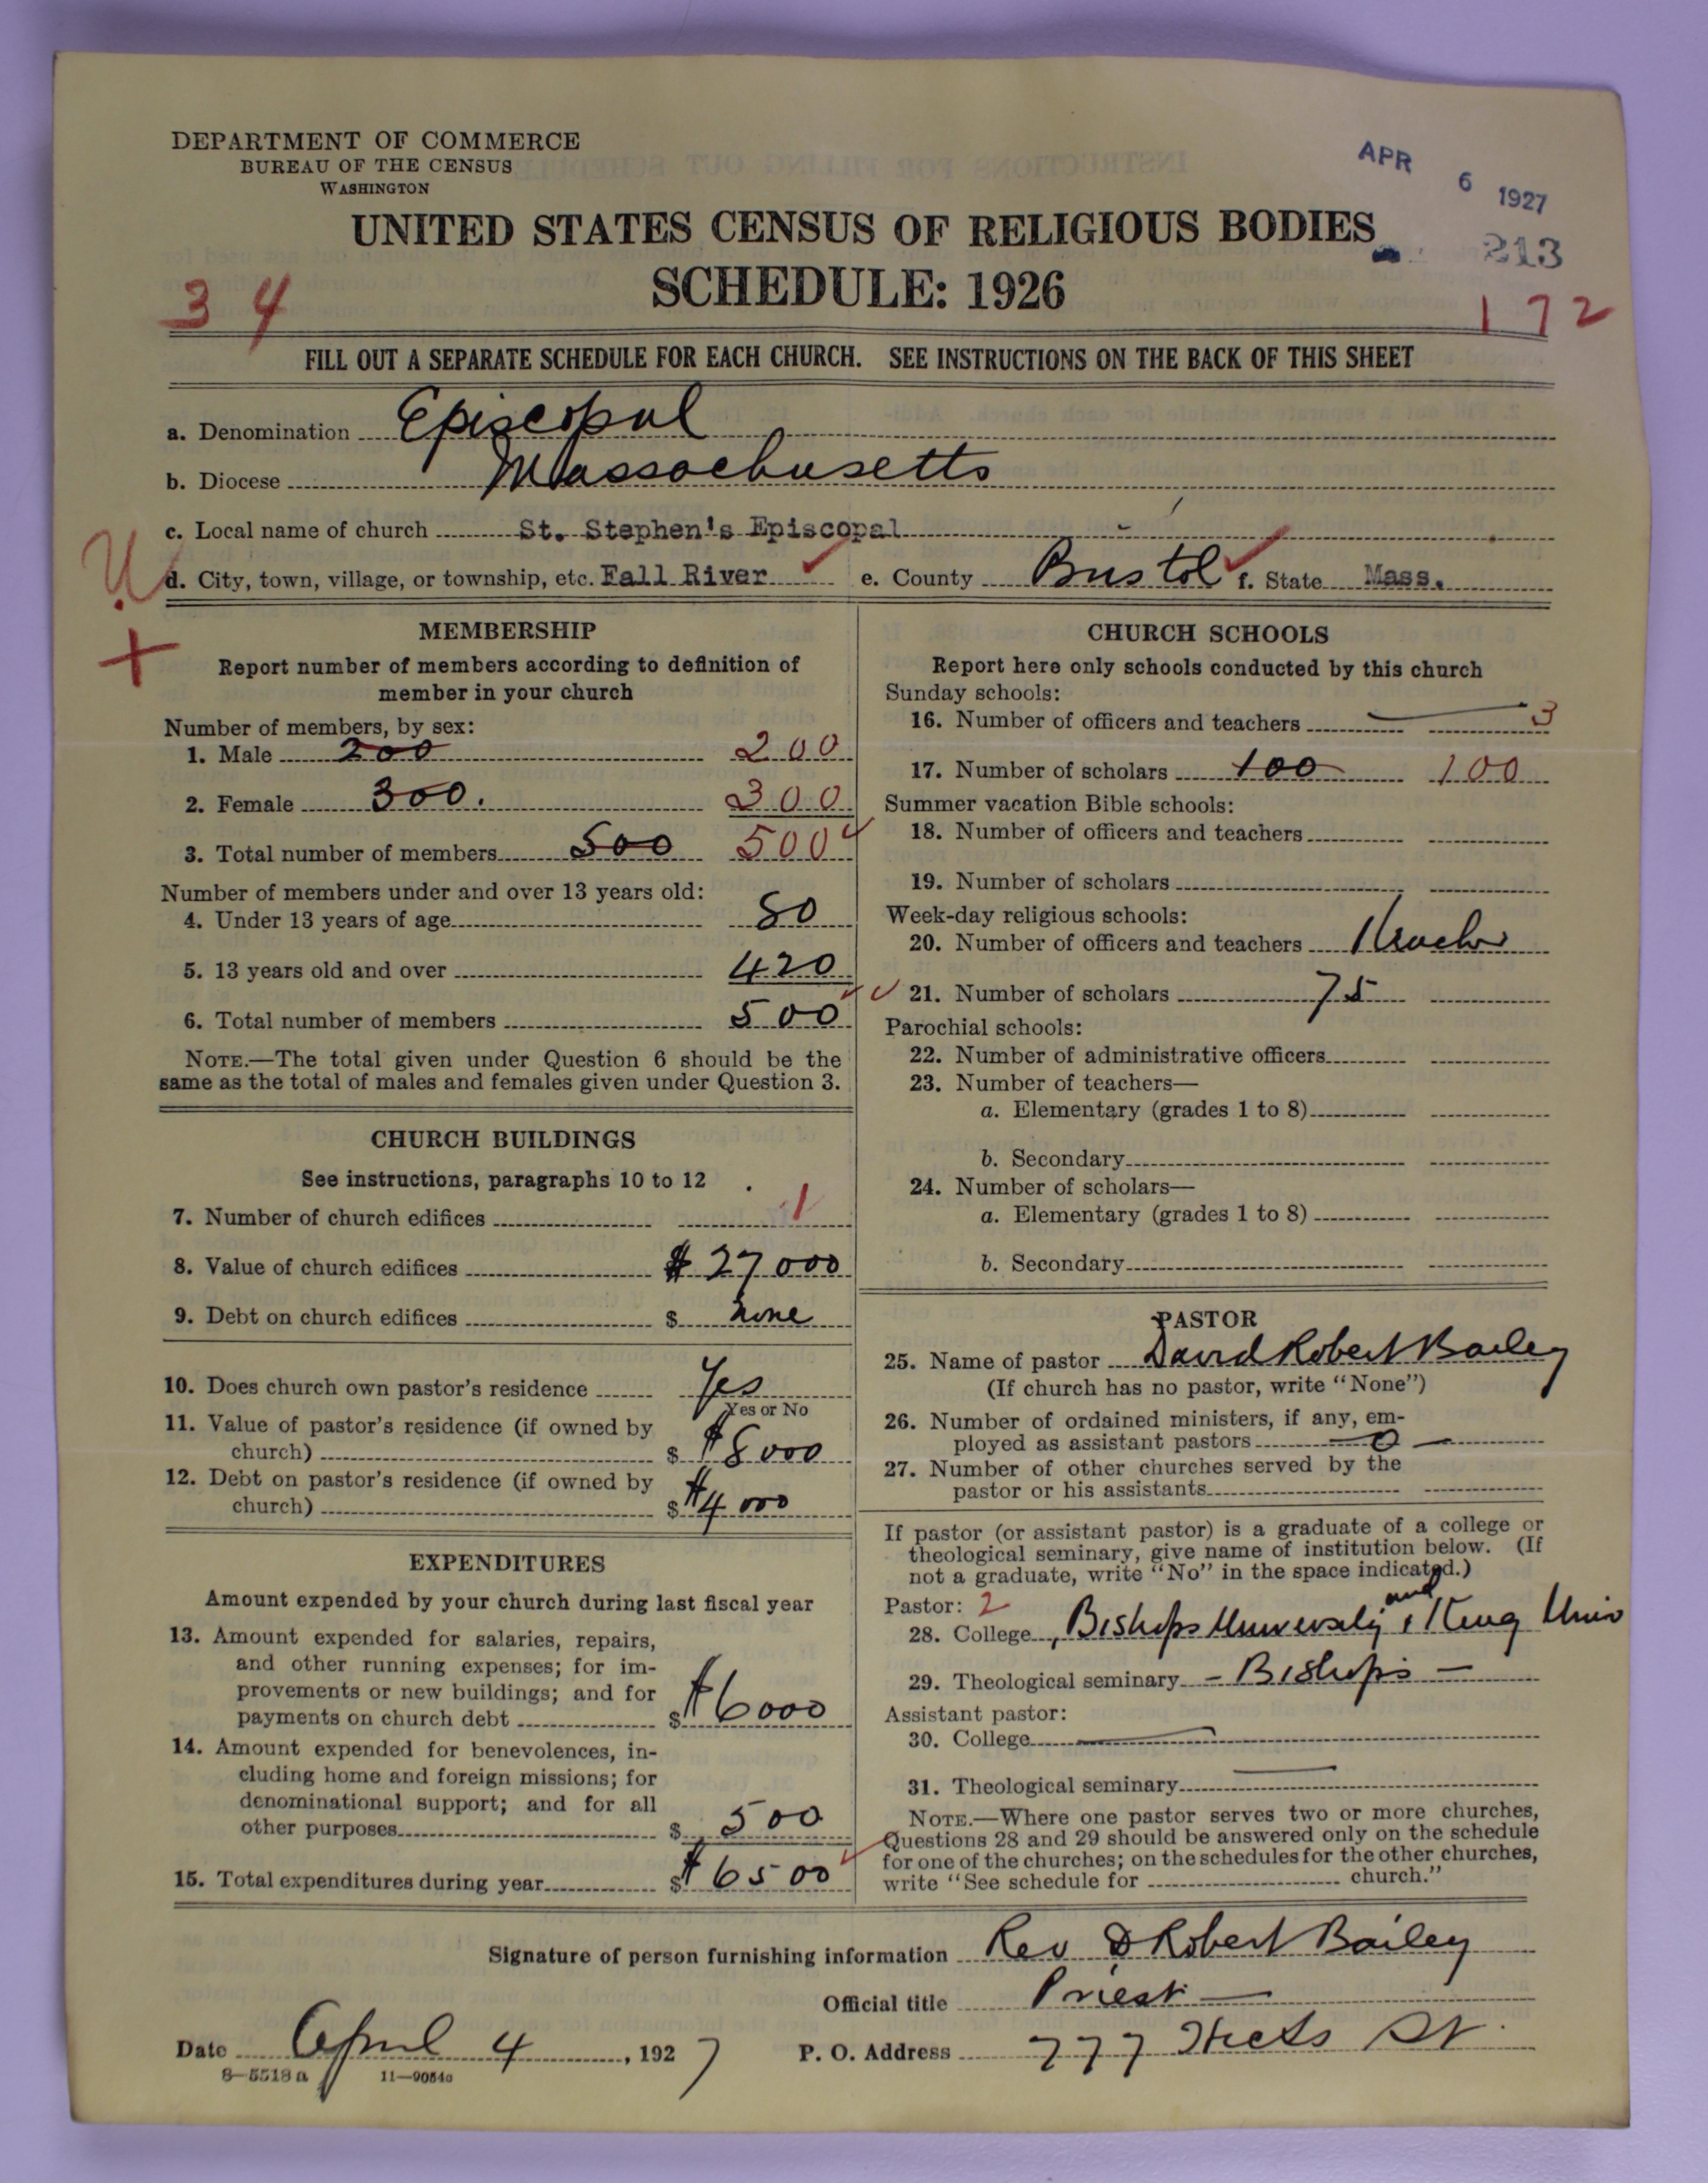 DEPARTMENT OF COMMERCE
BUREAU OF THE CENSUS
WASHINGTON
APR 6 1927
UNITED STATES CENSUS OF RELIGIOUS BODIES
213
SCHEDULE: 1926
34
172
FILL OUT A SEPARATE SCHEDULE FOR EACH CHURCH. SEE INSTRUCTIONS ON THE BACK OF THIS SHEET
a. Denomination Episcopal
b. Diocese Massachusetts
c. Local name of church St. Stephen's Episcopal
d. City, town, village, or township, etc. Fall River e. County Bristol f. State Mass.
MEMBERSHIP
Report number of members according to definition of
member in your church
Number of members, by sex:
1. Male 200 200
2. Female 300. 300
3. Total number of members 500 500
Number of members under and over 13 years old:
4. Under 13 years of age 80
5. 13 years old and over 420
6. Total number of members 500
NOTE.—The total given under Question 6 should be the
same as the total of males and females given under Question 3.
CHURCH BUILDINGS
See instructions, paragraphs 10 to 12
7. Number of church edifices 1
8. Value of church edifices $ 27000
9. Debt on church edifices $ none
10. Does church own pastor's residence Yes
Yes or No
11. Value of pastor's residence (if owned by
church) $ $8000
12. Debt on pastor's residence (if owned by
church) $ $4000
EXPENDITURES
Amount expended by your church during last fiscal year
13. Amount expended for salaries, repairs,
and other running expenses; for im-
provements or new buildings; and for
payments on church debt $ $6000
14. Amount expended for benevolences, in-
cluding home and foreign missions; for
denominational support; and for all
other purposes $ 500
15. Total expenditures during year $ $6500
CHURCH SCHOOLS
Report here only schools conducted by this church
Sunday schools:
16. Number of officers and teachers 3
17. Number of scholars 100 100
Summer vacation Bible schools:
18. Number of officers and teachers
19. Number of scholars
Week-day religious schools:
20. Number of officers and teachers 1 teacher
21. Number of scholars 75
Parochial schools:
22. Number of administrative officers
23. Number of teachers—
a. Elementary (grades 1 to 8)
b. Secondary
24. Number of scholars—
a. Elementary (grades 1 to 8)
b. Secondary
PASTOR
25. Name of pastor David Robert Bailey
(If church has no pastor, write "None")
26. Number of ordained ministers, if any, em-
ployed as assistant pastors — 0 —
27. Number of other churches served by the
pastor or his assistants
If pastor (or assistant pastor) is a graduate of a college or
theological seminary, give name of institution below. (If
not a graduate, write "No" in the space indicated.)
Pastor: 2
28. College Bishops University and King Univ
29. Theological seminary - Bishops -
Assistant pastor:
30. College
31. Theological seminary
NOTE.—Where one pastor serves two or more churches,
Questions 28 and 29 should be answered only on the schedule
for one of the churches; on the schedules for the other churches,
write "See schedule for church."
Signature of person furnishing information Rev D Robert Bailey
Official title Priest —
Date April 4, 1927 P. O. Address 777 St.
8—5518a 11—9054a